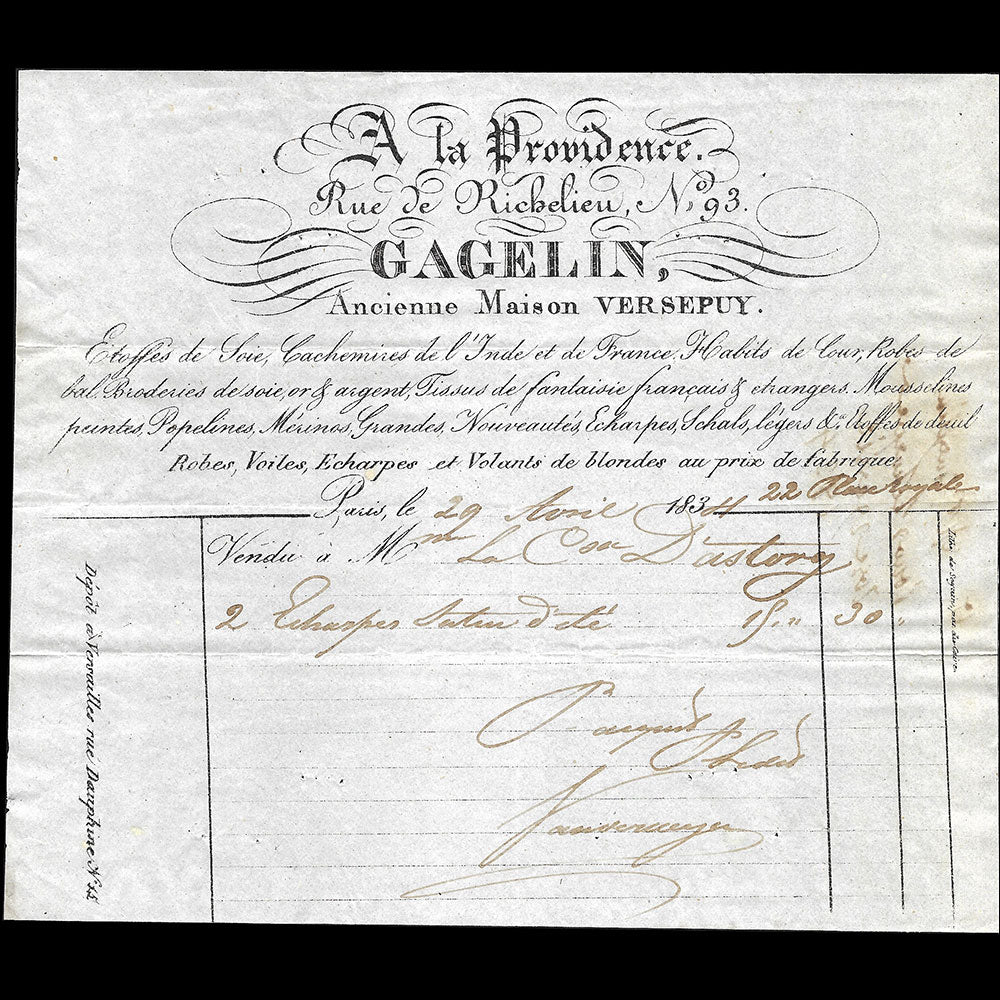 A la Providence.
Rue de Richelieu, No. 93.
GAGELIN,
Ancienne Maison VERSEPUY.
Etoffes de Soie, Cachemires de l'Inde et de France, Habits de Cour, Robes de
bal. Broderies de soie, or & argent, Tissus de fantaisie français & etrangers. Mousselines
peintes, Popelines, Mérinos, Grandes Nouveautés, Echarpes, Schals, légers &a. Etoffes de deuil
Robes, Voiles, Echarpes et Volants de blondes au prix de fabrique.
22 Place royale
Paris, le 29 Avril 1834
Vendu à Mme La Csse D'astorg
2 Echarpes d'été 15 " 30 "
Pacquet
Dépôt à Versailles rue Dauphine No 11
Lith: de